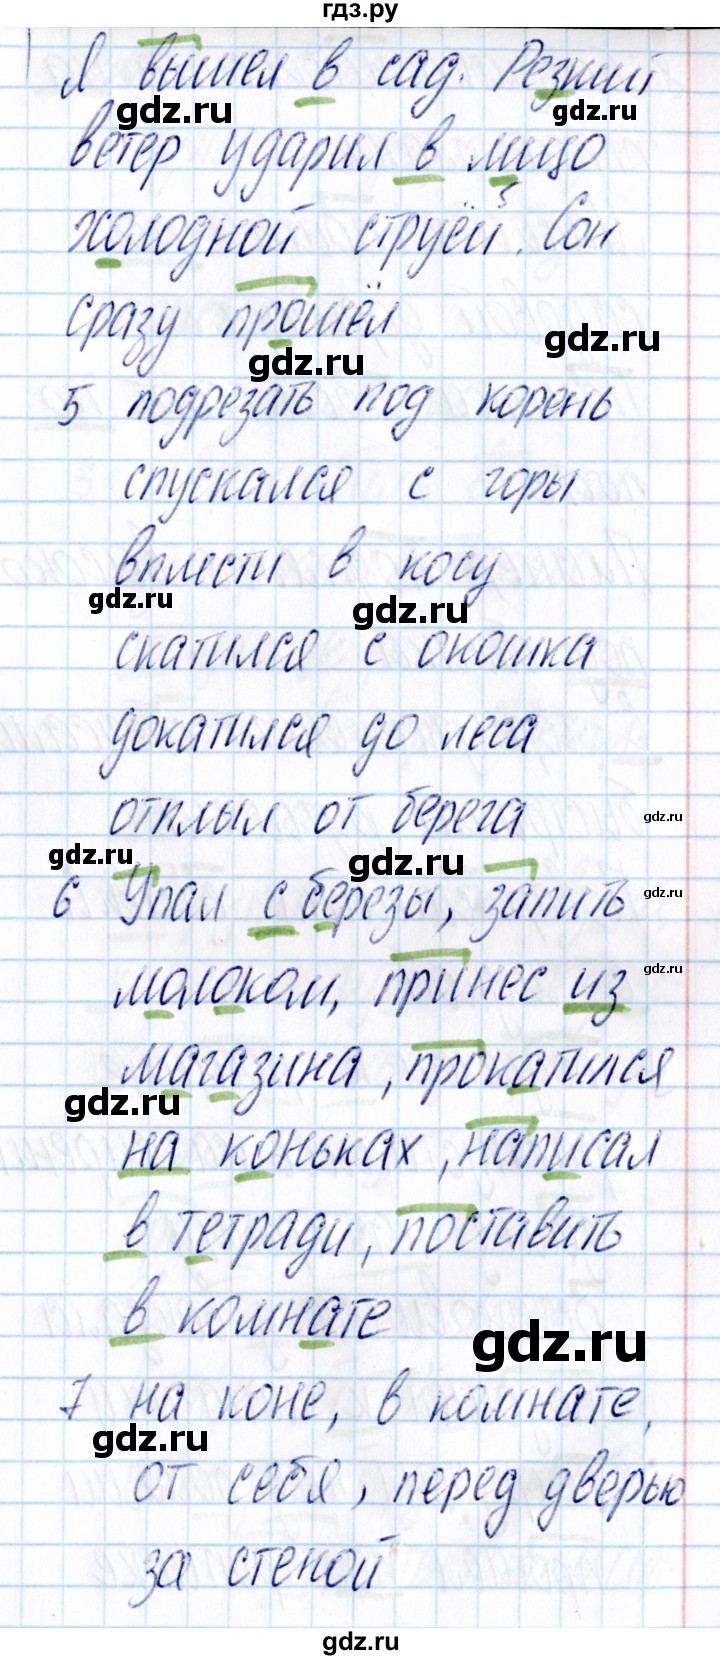 гдз.ру
Я вышел в сад. Резкий
gdz.ru gdz.ru
ветер ударил в лицо
холодной струёй. Сон
сразу прошёл
gdz.ru gdz.ru
5 подрезать под корень
спускался с горы
вплести в косу
gdz.ru gdz.ru
скатился с окошка
докатился до леса
отплыл от берега gdz.ru
gdz.ru gdz.ru
6 Упал с березы, запить gdz.ru
молоком, принес из gdz.ru
магазина, прокатился
gdz.ru
на коньках, написал
в тетради, поставить
в комнате
gdz.ru
7 на коне, в комнате,
gdz.ru
от себя, перед дверью
за стеной
gdz.ru